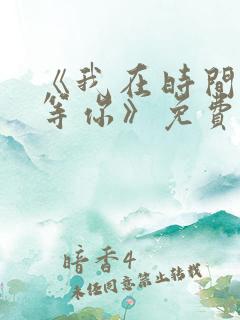 《我在時間
等你》免費
暗香4
未經同意禁止轉載